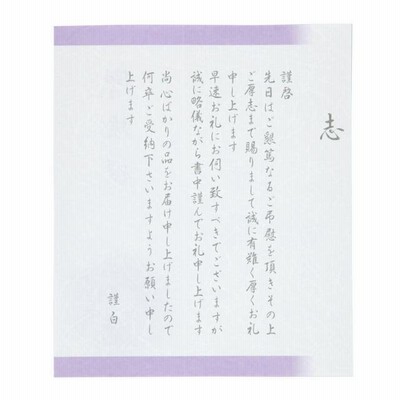 志
謹啓
先日はご懇篤なるご弔慰を頂きその上
ご厚志まで賜りまして誠に有難く厚くお礼
申し上げます
早速お礼にお伺い致すべきでございますが
誠に略儀ながら書中謹んでお礼申し上げます
尚心ばかりの品をお届け申し上げましたので
何卒ご受納下さいますようお願い申し
上げます
謹白